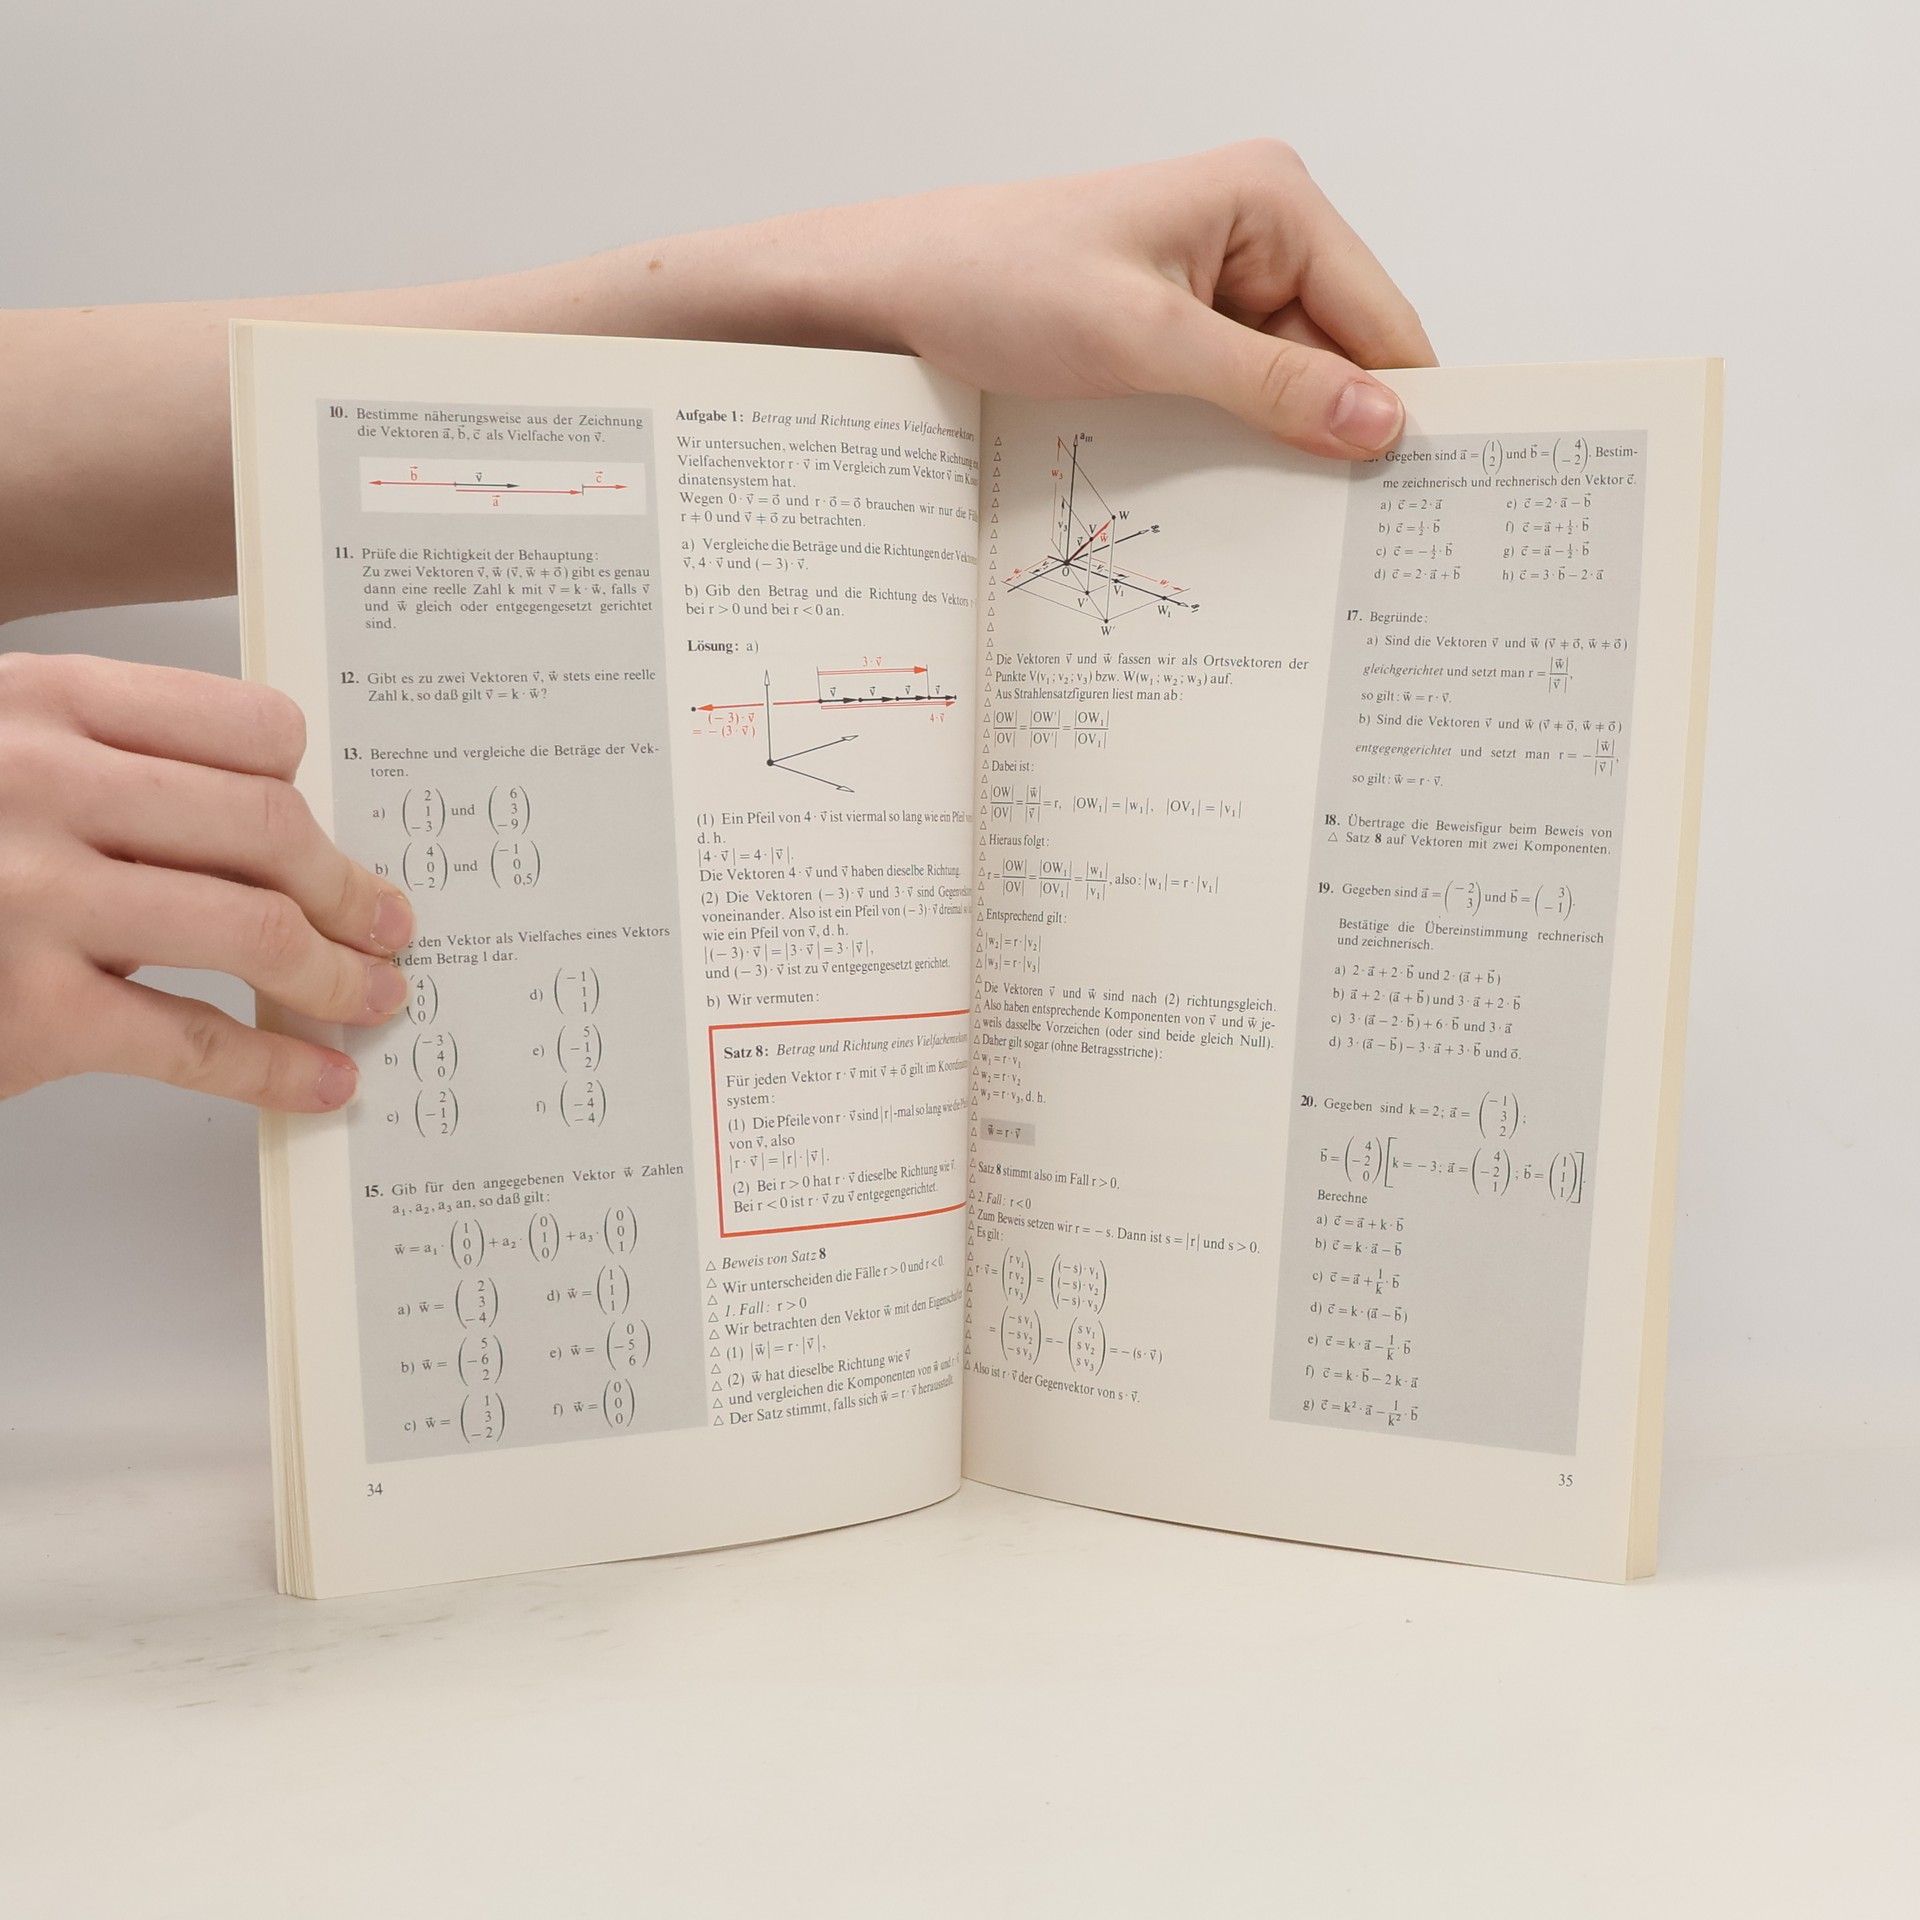 10. Bestimme näherungsweise aus der Zeichnung
die Vektoren a⃗, b⃗, c⃗ als Vielfache von v⃗.
b⃗ v⃗ c⃗
a⃗
11. Prüfe die Richtigkeit der Behauptung:
Zu zwei Vektoren v⃗, w⃗ (v⃗, w⃗ ≠ o⃗) gibt es genau
dann eine reelle Zahl k mit v⃗ = k · w⃗, falls v⃗
und w⃗ gleich oder entgegengesetzt gerichtet
sind.
12. Gibt es zu zwei Vektoren v⃗, w⃗ stets eine reelle
Zahl k, so daß gilt v⃗ = k · w⃗?
13. Berechne und vergleiche die Beträge der Vek-
toren.
a) (2 1 −3) und (6 3 −9)
b) (4 0 −2) und (−1 0 0,5)
den Vektor als Vielfaches eines Vektors
dem Betrag 1 dar.
(4 0 0) d) (−1 1 1)
b) (−3 4 0) e) (5 −1 2)
c) (2 −1 2) f) (2 −4 −4)
15. Gib für den angegebenen Vektor w⃗ Zahlen
a₁, a₂, a₃ an, so daß gilt:
w⃗ = a₁ · (1 0 0) + a₂ · (0 1 0) + a₃ · (0 0 1)
a) w⃗ = (2 3 −4) d) w⃗ = (1 1 1)
b) w⃗ = (5 −6 2) e) w⃗ = (0 −5 6)
c) w⃗ = (1 3 −2) f) w⃗ = (0 0 0)
34
Aufgabe 1: Betrag und Richtung eines Vielfachenvektors
Wir untersuchen, welchen Betrag und welche Richtung
Vielfachenvektor r · v⃗ im Vergleich zum Vektor v⃗ im
dinatensystem hat.
Wegen 0 · v⃗ = o⃗ und r · o⃗ = o⃗ brauchen wir nur die
r ≠ 0 und v⃗ ≠ o⃗ zu betrachten.
a) Vergleiche die Beträge und die Richtungen der
v⃗, 4 · v⃗ und (−3) · v⃗.
b) Gib den Betrag und die Richtung des Vektors
bei r > 0 und bei r < 0 an.
Lösung: a)
3 · v⃗
v⃗ v⃗ v⃗ v⃗
(−3) · v⃗ 4 · v⃗
= −(3 · v⃗)
(1) Ein Pfeil von 4 · v⃗ ist viermal so lang wie ein Pfeil
d. h.
|4 · v⃗| = 4 · |v⃗|.
Die Vektoren 4 · v⃗ und v⃗ haben dieselbe Richtung.
(2) Die Vektoren (−3) · v⃗ und 3 · v⃗ sind
voneinander. Also ist ein Pfeil von (−3) · v⃗ dreimal
wie ein Pfeil von v⃗, d. h.
|(−3) · v⃗| = |3 · v⃗| = 3 · |v⃗|,
und (−3) · v⃗ ist zu v⃗ entgegengesetzt gerichtet.
b) Wir vermuten:
Satz 8: Betrag und Richtung eines
Für jeden Vektor r · v⃗ mit v⃗ ≠ o⃗ gilt im
system:
(1) Die Pfeile von r · v⃗ sind |r|-mal so lang wie die
von v⃗, also
|r · v⃗| = |r| · |v⃗|.
(2) Bei r > 0 hat r · v⃗ dieselbe Richtung wie v⃗.
Bei r < 0 ist r · v⃗ zu v⃗ entgegengerichtet.
△ Beweis von Satz 8
△ Wir unterscheiden die Fälle r > 0 und r < 0.
△ 1. Fall: r > 0
△ Wir betrachten den Vektor w⃗ mit den
△ (1) |w⃗| = r · |v⃗|,
△ (2) w⃗ hat dieselbe Richtung wie v⃗
△ und vergleichen die Komponenten von w⃗ und
△ Der Satz stimmt, falls sich w⃗ = r · v⃗ herausstellt.
a_III
w₃
W
v₃ V
v⃗ w⃗
O
V' V₁
W₁
W'
△ Die Vektoren v⃗ und w⃗ fassen wir als Ortsvektoren der
△ Punkte V(v₁; v₂; v₃) bzw. W(w₁; w₂; w₃) auf.
△ Aus Strahlensatzfiguren liest man ab:
△ |OW|/|OV| = |OW'|/|OV'| = |OW₁|/|OV₁|
△ Dabei ist:
△ |OW|/|OV| = |w⃗|/|v⃗| = r, |OW₁| = |w₁|, |OV₁| = |v₁|
△ Hieraus folgt:
△ r = |OW|/|OV| = |OW₁|/|OV₁| = |w₁|/|v₁|, also: |w₁| = r · |v₁|
△ Entsprechend gilt:
△ |w₂| = r · |v₂|
△ |w₃| = r · |v₃|
△ Die Vektoren v⃗ und w⃗ sind nach (2) richtungsgleich.
△ Also haben entsprechende Komponenten von v⃗ und w⃗ je-
△ weils dasselbe Vorzeichen (oder sind beide gleich Null).
△ Daher gilt sogar (ohne Betragsstriche):
△ w₁ = r · v₁
△ w₂ = r · v₂
△ w₃ = r · v₃, d. h.
△ w⃗ = r · v⃗
△ Satz 8 stimmt also im Fall r > 0.
△ 2. Fall: r < 0
△ Zum Beweis setzen wir r = −s. Dann ist s = |r| und s > 0.
△ Es gilt:
△ r · v⃗ = (rv₁ rv₂ rv₃) = ((−s) · v₁ (−s) · v₂ (−s) · v₃)
△ = (−sv₁ −sv₂ −sv₃) = −(sv₁ sv₂ sv₃) = −(s · v⃗)
△ Also ist r · v⃗ der Gegenvektor von s · v⃗.
Gegeben sind a⃗ = (1 2) und b⃗ = (4 −2). Bestim-
me zeichnerisch und rechnerisch den Vektor c⃗.
a) c⃗ = 2 · a⃗ e) c⃗ = 2 · a⃗ − b⃗
b) c⃗ = ½ · b⃗ f) c⃗ = a⃗ + ½ · b⃗
c) c⃗ = −½ · b⃗ g) c⃗ = a⃗ − ½ · b⃗
d) c⃗ = 2 · a⃗ + b⃗ h) c⃗ = 3 · b⃗ − 2 · a⃗
17. Begründe:
a) Sind die Vektoren v⃗ und w⃗ (v⃗ ≠ o⃗, w⃗ ≠ o⃗)
gleichgerichtet und setzt man r = |w⃗|/|v⃗|,
so gilt: w⃗ = r · v⃗.
b) Sind die Vektoren v⃗ und w⃗ (v⃗ ≠ o⃗, w⃗ ≠ o⃗)
entgegengerichtet und setzt man r = −|w⃗|/|v⃗|,
so gilt: w⃗ = r · v⃗.
18. Übertrage die Beweisfigur beim Beweis von
△ Satz 8 auf Vektoren mit zwei Komponenten.
19. Gegeben sind a⃗ = (−2 3) und b⃗ = (3 −1).
Bestätige die Übereinstimmung rechnerisch
und zeichnerisch.
a) 2 · a⃗ + 2 · b⃗ und 2 · (a⃗ + b⃗)
b) a⃗ + 2 · (a⃗ + b⃗) und 3 · a⃗ + 2 · b⃗
c) 3 · (a⃗ − 2 · b⃗) + 6 · b⃗ und 3 · a⃗
d) 3 · (a⃗ − b⃗) − 3 · a⃗ + 3 · b⃗ und o⃗.
20. Gegeben sind k = 2; a⃗ = (−1 3 2);
b⃗ = (4 −2 0) [k = −3; a⃗ = (4 −2 1); b⃗ = (1 1 1)].
Berechne
a) c⃗ = a⃗ + k · b⃗
b) c⃗ = k · a⃗ − b⃗
c) c⃗ = a⃗ + 1/k · b⃗
d) c⃗ = k · (a⃗ − b⃗)
e) c⃗ = k · a⃗ − 1/k · b⃗
f) c⃗ = k · b⃗ − 2k · a⃗
g) c⃗ = k² · a⃗ − 1/k² · b⃗
35